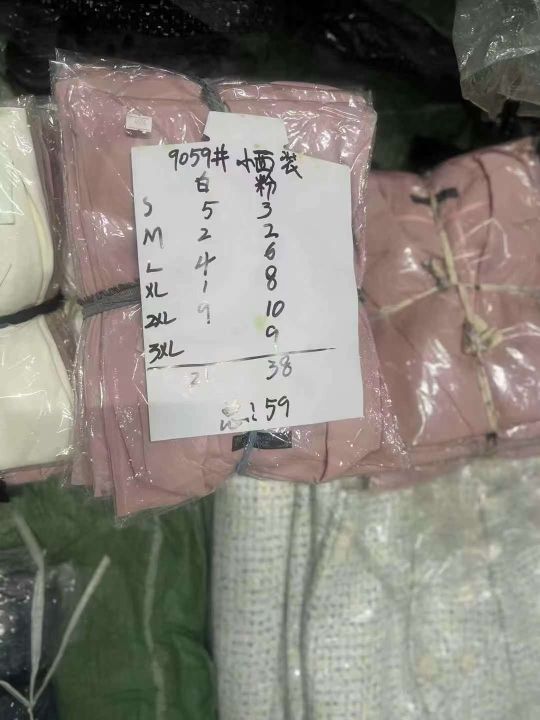 9059# 小西装
白 粉
S 5 3
M 2 2
L 4 6
XL 1 8
2XL 9 10
3XL 9
21 38
总:59